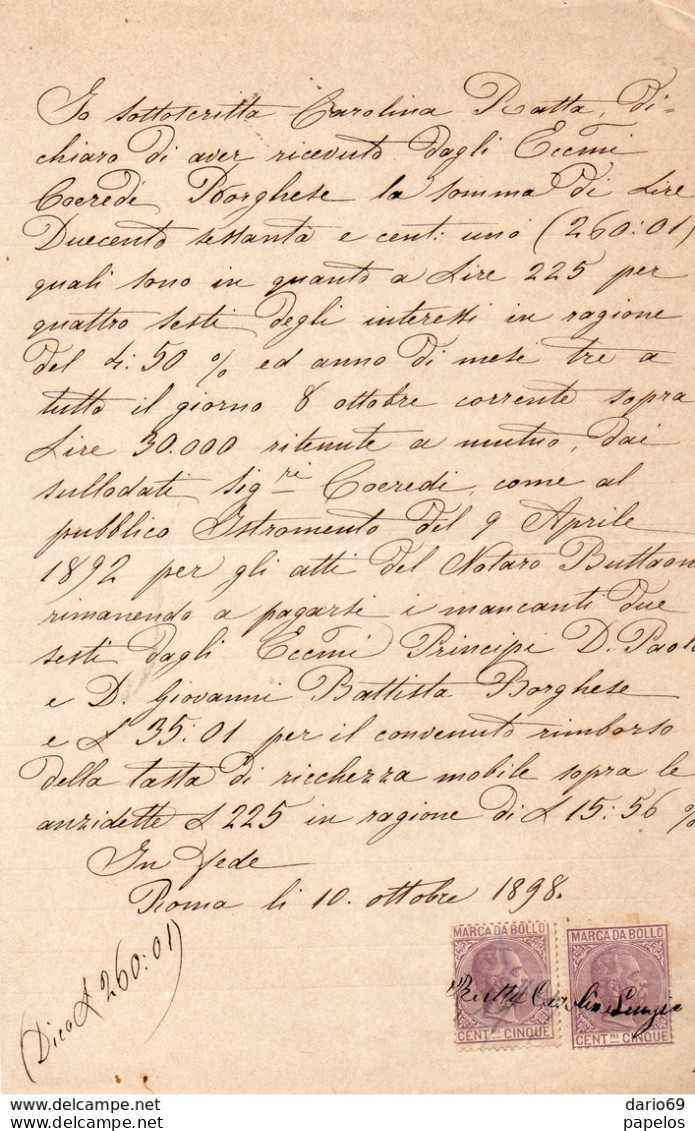 Io sottoscritta Carolina Ratta, di=
chiaro di aver ricevuto dagli Eccmi
Coeredi Borghese la somma di Lire
Duecento sessanta e cent: uno (260:01)
quali sono in quanto a Lire 225 per
quattro sesti degli interessi in ragione
del 4:50 % ed anno di mese tre a
tutto il giorno 8 ottobre corrente sopra
Lire 30.000 ritenute a mutuo, dai
sullodati Sigri Coeredi, come al
pubblico Istromento del 9 Aprile
1892 per gli atti del Notaro Buttaon
rimanendo a pagarsi i mancanti due
sesti dagli Eccmi Principi D. Paolo
e D. Giovanni Battista Borghese
e £ 35:01 per il convenuto rimborso
della tassa di ricchezza mobile sopra le
anzidette £ 225 in ragione di £ 15:56 %
In Fede
Roma li 10. ottobre 1898.
(Dico £ 260:01)
MARCA DA BOLLO MARCA DA BOLLO
CENT.MI CINQUE CENT.MI CINQUE
dario69
papelos